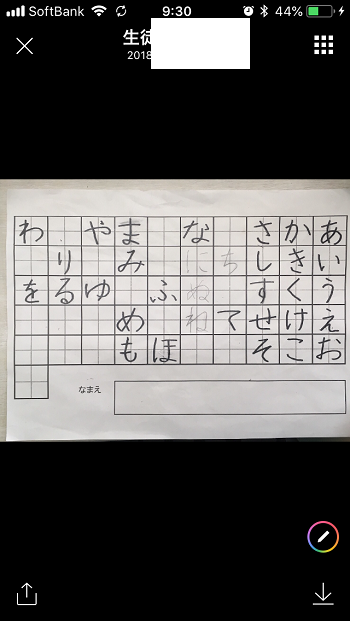 SoftBank 9:30 44%
生徒
2018
あいうえお
かきくけこ
さしすせそ
ちて
なにぬね
ふほ
まみめも
やゆ
りる
わを
なまえ